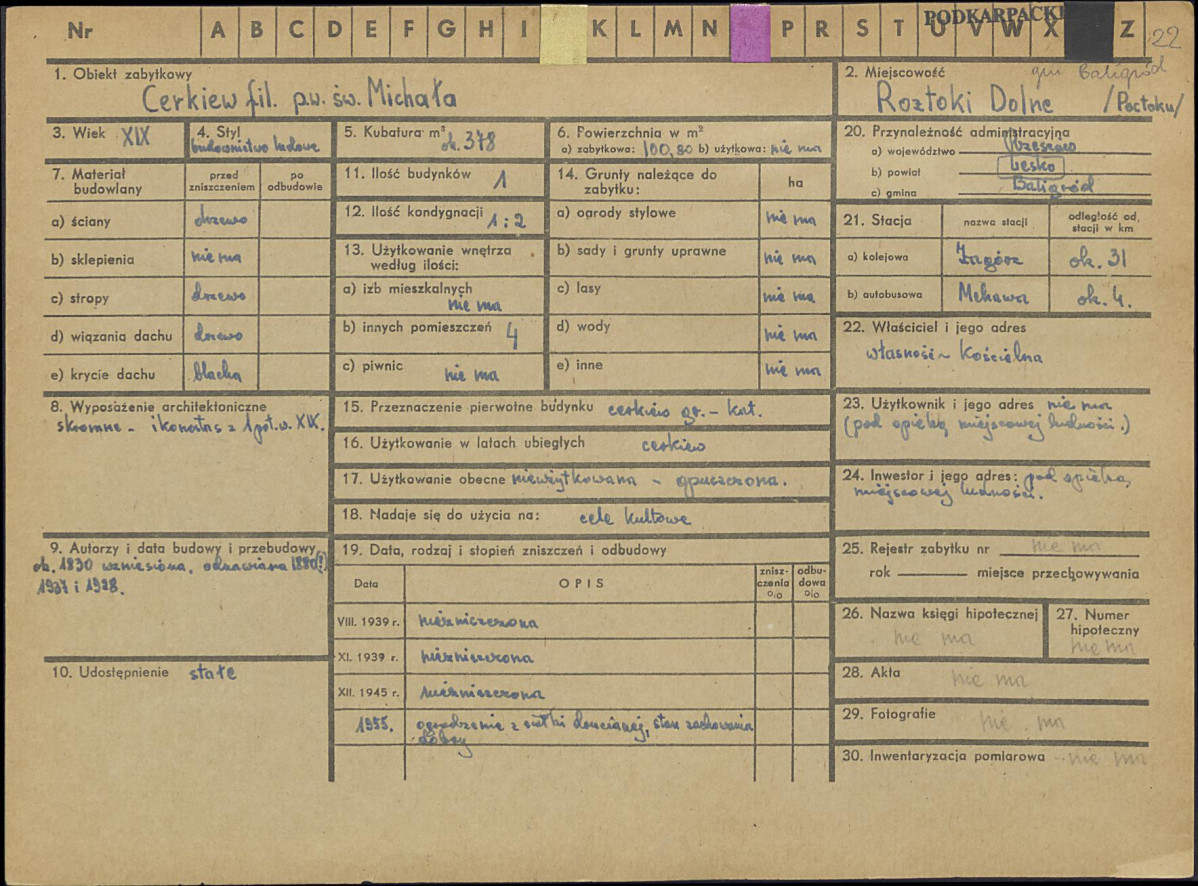 Nr A B C D E F G H I K L M N P R S T U V W X Z
PODKARPACKI
22
1. Obiekt zabytkowy
Cerkiew fil. p.w. św. Michała
2. Miejscowość
gm Baligród
Roztoki Dolne /Poctoku/
3. Wiek XIX
4. Styl
budownictwo ludowe
5. Kubatura m³
ok. 378
6. Powierzchnia w m²
a) zabytkowa: 100,80 b) użytkowa: nie ma
20. Przynależność administracyjna
a) województwo Rzeszów
b) powiat Lesko
c) gmina Baligród
7. Materiał budowlany
przed zniszczeniem
po odbudowie
a) ściany drzewo
b) sklepienia nie ma
c) stropy drzewo
d) wiązania dachu drzewo
e) krycie dachu blacha
11. Ilość budynków 1
12. Ilość kondygnacji 1 i 2
13. Użytkowanie wnętrza
według ilości:
a) izb mieszkalnych
nie ma
b) innych pomieszczeń 4
c) piwnic nie ma
14. Grunty należące do
zabytku:
ha
a) ogrody stylowe nie ma
b) sady i grunty uprawne nie ma
c) lasy nie ma
d) wody nie ma
e) inne nie ma
21. Stacja
nazwa stacji
odległość od
stacji w km
a) kolejowa Zagórz ok. 31
b) autobusowa Mchawa ok. 4.
22. Właściciel i jego adres
własność Kościelna
8. Wyposażenie architektoniczne
skromne - ikonostas z 1 poł. w. XIX.
15. Przeznaczenie pierwotne budynku cerkiew gr.-kat.
16. Użytkowanie w latach ubiegłych cerkiew
17. Użytkowanie obecne nieużytkowana - opuszczona.
18. Nadaje się do użycia na: cele kultowe
23. Użytkownik i jego adres nie ma
(pod opieką miejscowej ludności.)
24. Inwestor i jego adres: pod opieką
miejscowej ludności.
9. Autorzy i data budowy i przebudowy
ok. 1830 wzniesiona, odnawiana 1880(?)
1937 i 1928.
10. Udostępnienie stałe
19. Data, rodzaj i stopień zniszczeń i odbudowy
Data
OPIS
znisz-
czenia
%
odbu-
dowa
%
VIII. 1939 r. niezniszczona
XI. 1939 r. niezniszczona
XII. 1945 r. niezniszczona
1955. ogrodzenie z siatki drucianej, stan zachowania
dobry
25. Rejestr zabytku nr nie ma
rok miejsce przechowywania
26. Nazwa księgi hipotecznej
nie ma
27. Numer
hipoteczny
nie ma
28. Akta nie ma
29. Fotografie nie ma
30. Inwentaryzacja pomiarowa nie ma